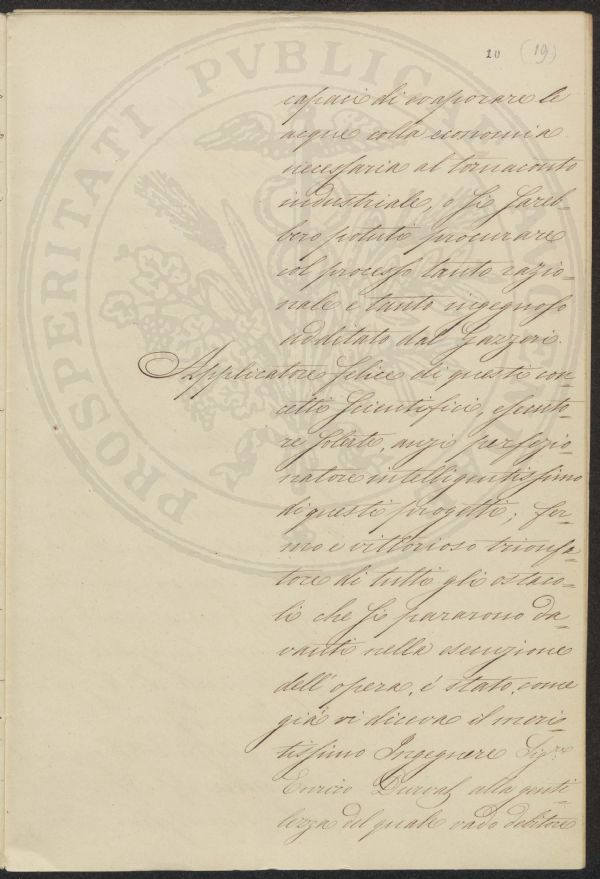 20 (19)
capaci di evaporare le
acque colla economia
necessaria al tornaconto
industriale, o si sareb-
bero potuti procurare
col processo tanto razio-
nale e tanto ingegnoso
additato dal Gazzeri.
Applicatore felice di questi con-
cetti scientifici, esecuto-
re solerte, anzi perfezio-
natore intelligentissimo
di questi progetti; fer-
mo e vittorioso trionfa-
tore di tutti gli ostaco-
li che si pararono da-
vanti nella esecuzione
dell'opera, é stato, come
giá vi diceva il meri-
tissimo Ingegnere Sigre
Enrico Durval alla genti-
lezza del quale vado debitore
PROSPERITATI PVBLICAE